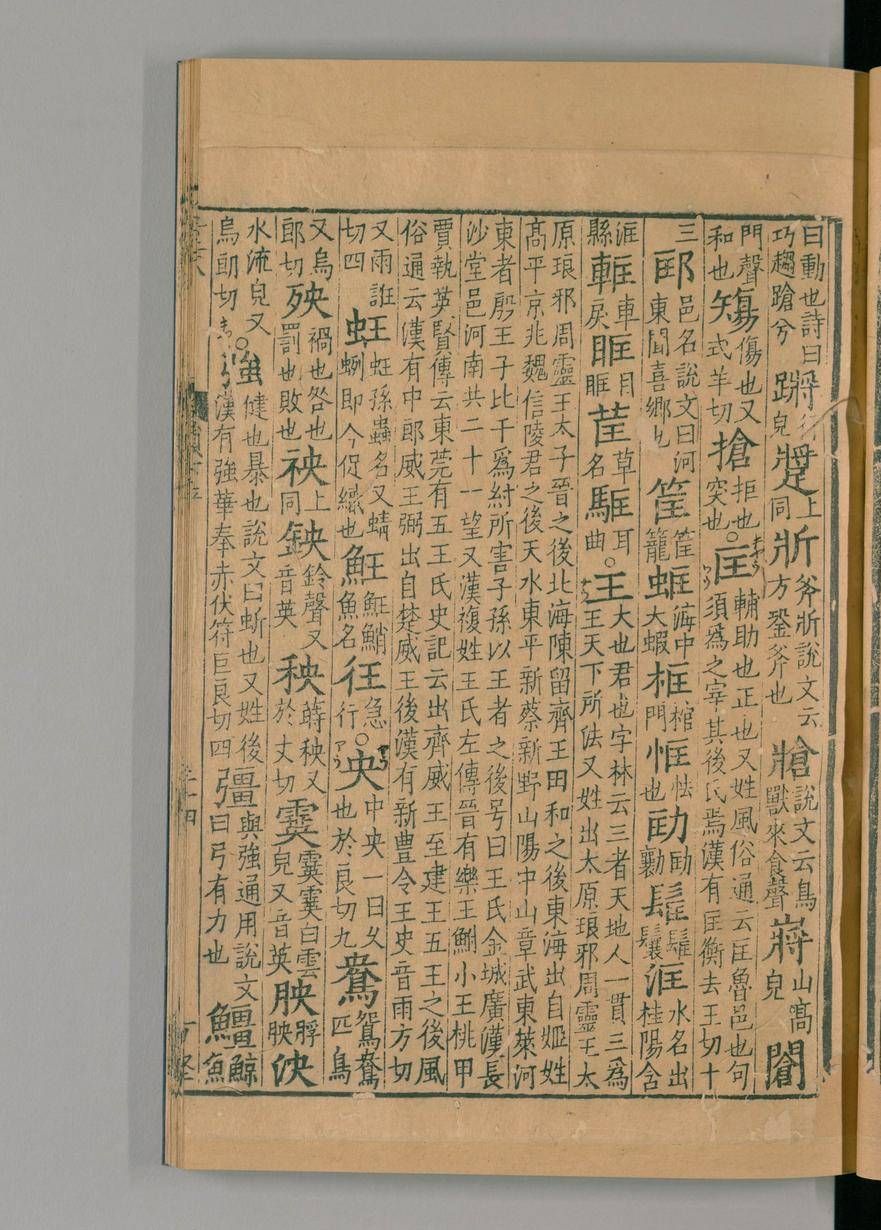 曰動也詩曰巧趨蹌兮行皃上同斨斧斨說文云方銎斧也牄說文云鳥獸來食聲嶈山高皃閶
門聲和也𥏻傷也又式羊切搶拒也突也○匡輔助也正也又姓風俗通云匡魯邑也句須爲之宰其後氏焉漢有匡衡去王切十
三邼邑名說文曰河東聞喜鄉也筐筐籠海中大蝦框棺門恇怯也劻劻勷鬞鬞鬤洭水名出桂陽含
洭縣軭車戾眶目眶草名耳曲○王大也君也字林云三者天地人一貫三爲王天下所法又姓出太原琅邪周靈王太
原琅邪周靈王太子晉之後北海陳留齊王田和之後東海出自姬姓
高平京兆魏信陵君之後天水東平新蔡新野山陽中山章武東萊河
東者殷王子比干爲紂所害子孫以王者之後号曰王氏金城廣漢長
沙堂邑河南共二十一望又漢複姓王氏左傳晉有樂王鮒小王桃甲
賈執英賢傳云東莞有五王氏史記云出齊威王至建王五王之後風
俗通云漢有中郎威王弼出自楚威王後漢有新豐令王史音雨方切
又雨誑切四蚟蚟孫蟲名又蜻蛚即今促織也鮹魚名彺急行○央中央一曰久也於良切九鴦鴛鴦匹鳥
又烏郎切殃禍也咎也罰也敗也上同鉠鈴聲又音英秧蒔秧又於丈切霙霙霙白雲皃又音英胦脖胦泱
水流皃又烏朗切○強健也暴也說文曰蚚也又姓後漢有強華奉赤伏符巨良切四彊與強通用說文曰弓有力也鱷鯨魚